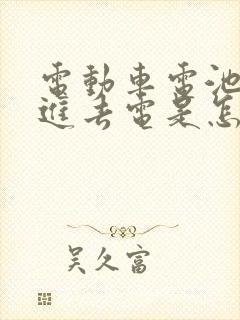 電動車電池
進去電是怎
吳久富